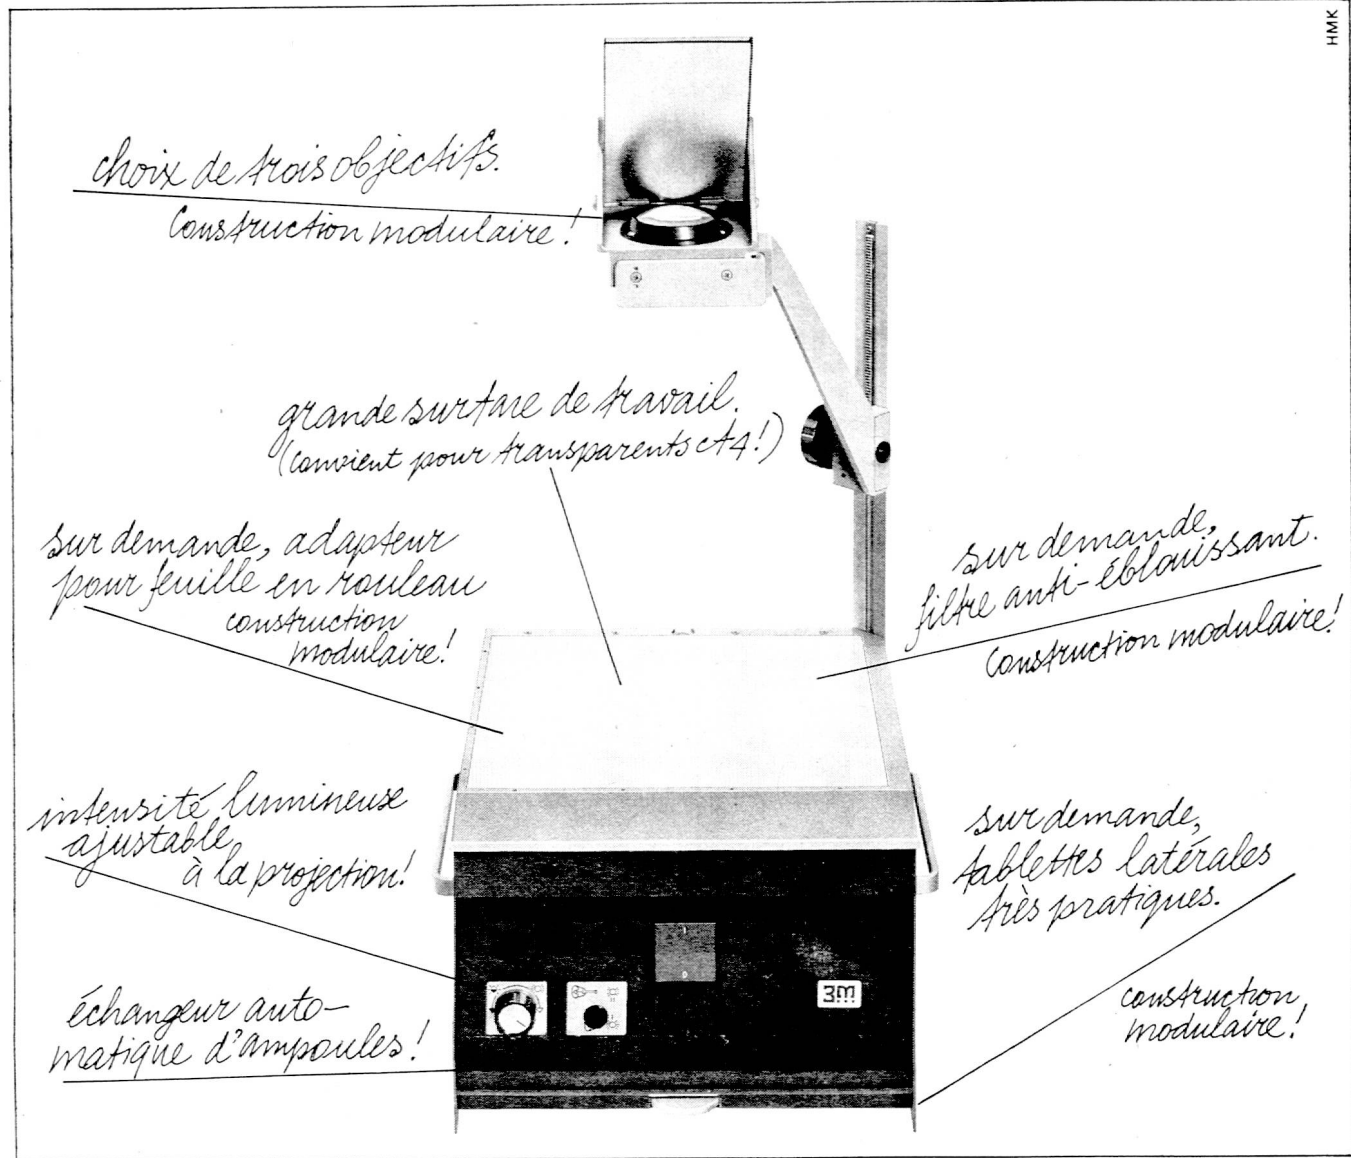 HMK
choix de trois objectifs.
Construction modulaire!
grande surface de travail.
(convient pour transparents A4!)
sur demande, adapteur
pour feuille en rouleau
construction
modulaire!
sur demande,
filtre anti-éblouissant.
Construction modulaire!
intensité lumineuse
ajustable
à la projection!
sur demande,
tablettes latérales
très pratiques.
construction
modulaire!
échangeur auto-
matique d'ampoules!
3M